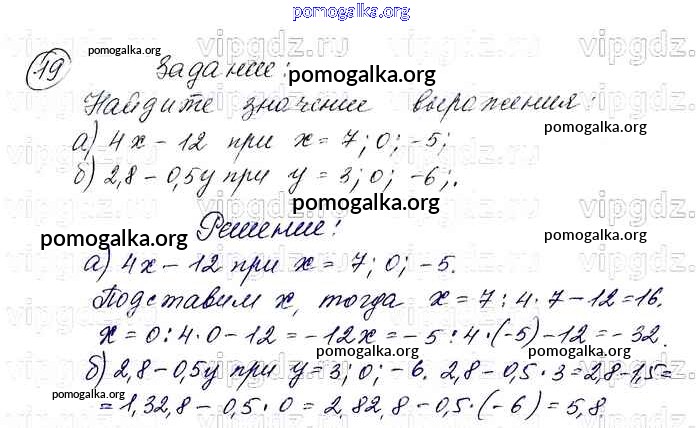 pomogalka.org
19 pomogalka.org
Задание: pomogalka.org
Найдите значение выражения:
а) 4x - 12 при x = 7; 0; -5; pomogalka.org
б) 2,8 - 0,5y при y = 3; 0; -6;.
pomogalka.org pomogalka.org
Решение:
pomogalka.org pomogalka.org
а) 4x - 12 при x = 7; 0; -5.
Подставим x, тогда x = 7 : 4 · 7 - 12 = 16.
x = 0 : 4 · 0 - 12 = -12x = -5 : 4 · (-5) - 12 = -32.
pomogalka.org pomogalka.org
б) 2,8 - 0,5y при y = 3; 0; -6. 2,8 - 0,5 · 3 = 2,8 - 1,5 =
pomogalka.org
= 1,32,8 - 0,5 · 0 = 2,82,8 - 0,5 · (-6) = 5,8.
pomogalka.org
vipgdz.ru vipgdz.ru vipgdz.ru